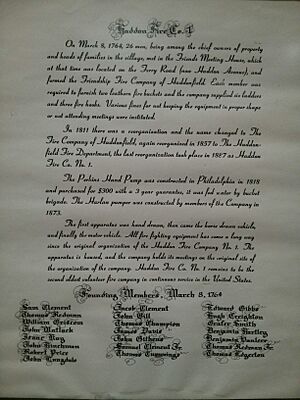 Haddon Fire Co. 1
On March 8, 1764, 26 men, being among the chief owners of property
and heads of families in the village, met in the Friends Meeting House, which
at that time was located on the Ferry Road (now Haddon Avenue), and
formed the Friendship Fire Company of Haddonfield. Each member was
required to furnish two leathern fire buckets and the company supplied six ladders
and three fire hooks. Various fines for not keeping the equipment in proper shape
or not attending meetings were instituted.
In 1811 there was a reorganization and the name changed to The
Fire Company of Haddonfield, again reorganized in 1857 to The Haddon-
field Fire Department, the last reorganization took place in 1887 as Haddon
Fire Co. No. 1.
The Perkins Hand Pump was constructed in Philadelphia in 1818
and purchased for $300 with a 3 year guarantee, it was fed water by bucket
brigade. The Harlan pumper was constructed by members of the Company in
1873.
The first apparatus was hand drawn, then came the horse drawn vehicle,
and finally the motor vehicle. All fire fighting equipment has come a long way
since the original organization of the Haddon Fire Company No. 1. The
apparatus is housed, and the company holds its meetings on the original site of
the organization of the company. Haddon Fire Co. No. 1 remains to be the
second oldest volunteer fire company in continuous service in the United States.
Founding Members, March 8, 1764
Sam Clement Jacob Clement Edward Gibbs
Thomas Redman John Gill Hugh Creighton
William Griscom Thomas Champion Smith
John Matlack Isaac David Benjamin Hartley
Isaac Kay John Githens Benjamin
John Hinchman Samuel Clement Jr. Thomas Redman Jr.
Robert Price Thomas Cummings Thomas Edgerton
John Langdale